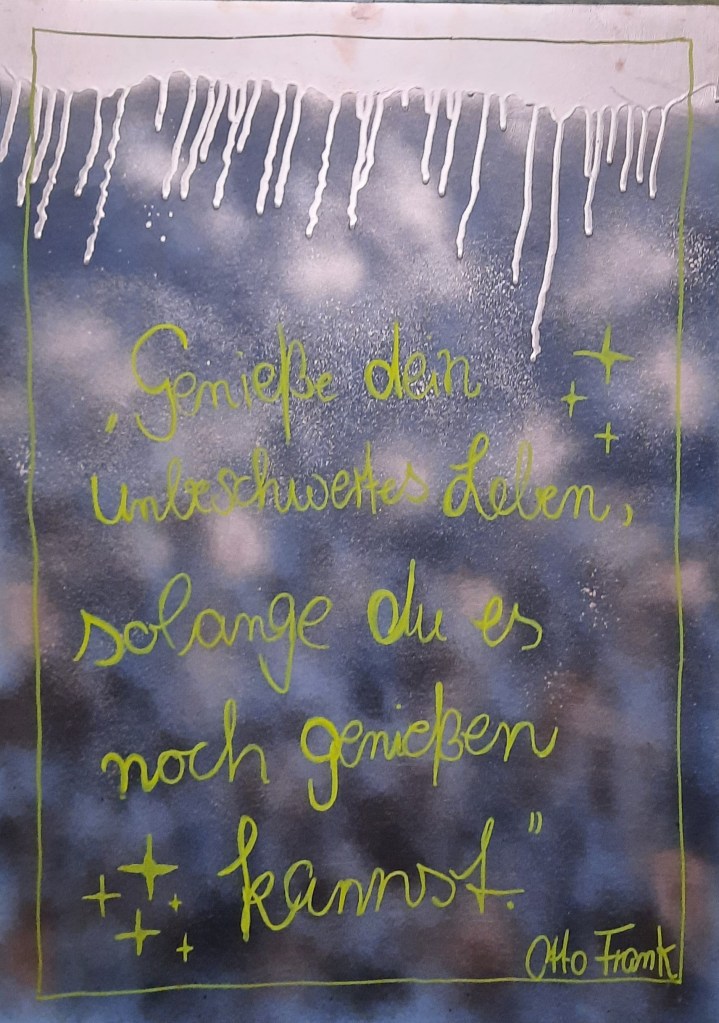 „Genieße dein
unbeschwertes Leben,
solange du es
noch genießen
kannst."
Otto Frank